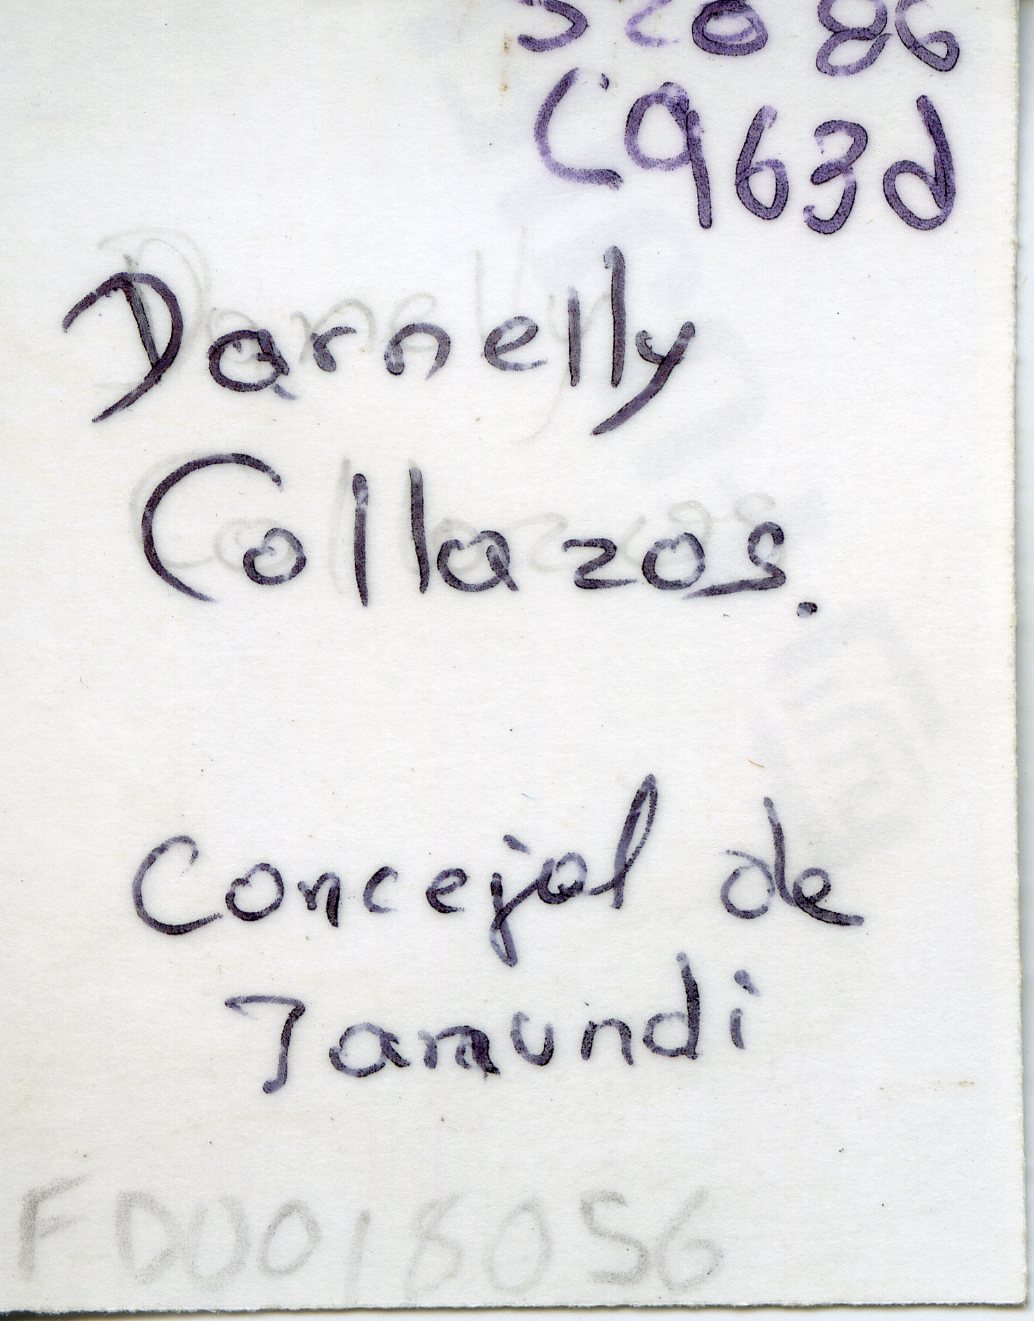 52086
C963d
Darnelly
Collazos.
Concejal de
Jamundi
FD0018056